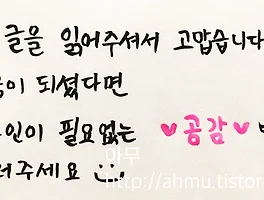 글을 읽어주셔서 고맙습니다
이 되셨다면
인이 필요없는 ♥공감♥
주세요
아무
http://ahmu.tistor